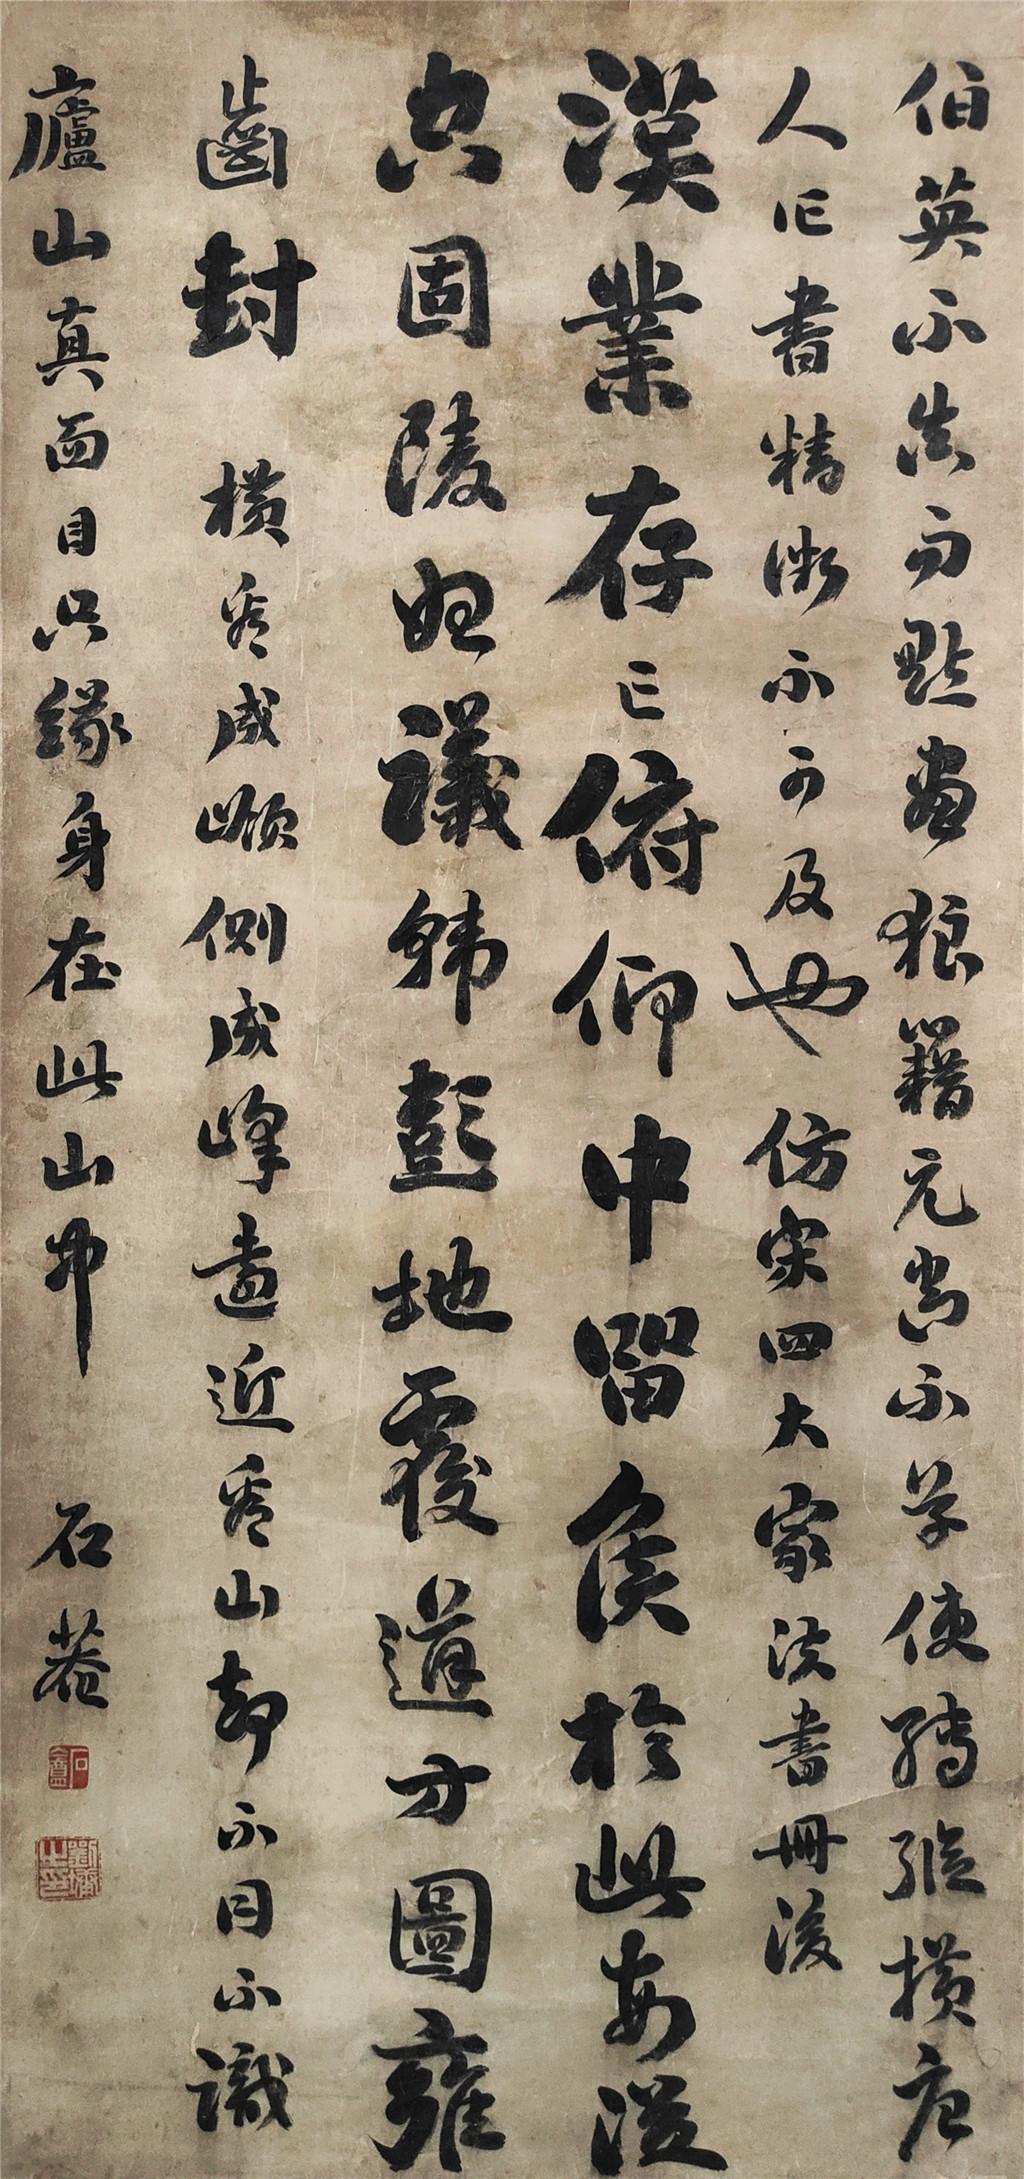 伯英不真而點畫狼籍元常不草使轉縱橫唐
人作書精微不可及也 仿宋四大家法書冊後
漢業存亡俯仰中留侯於此每從
容固陵始議韓彭地複道方圖雍
齒封 橫看成嶺側成峰遠近看山都不同不識
廬山真面目只緣身在此山中 石菴
石盦
劉墉之印